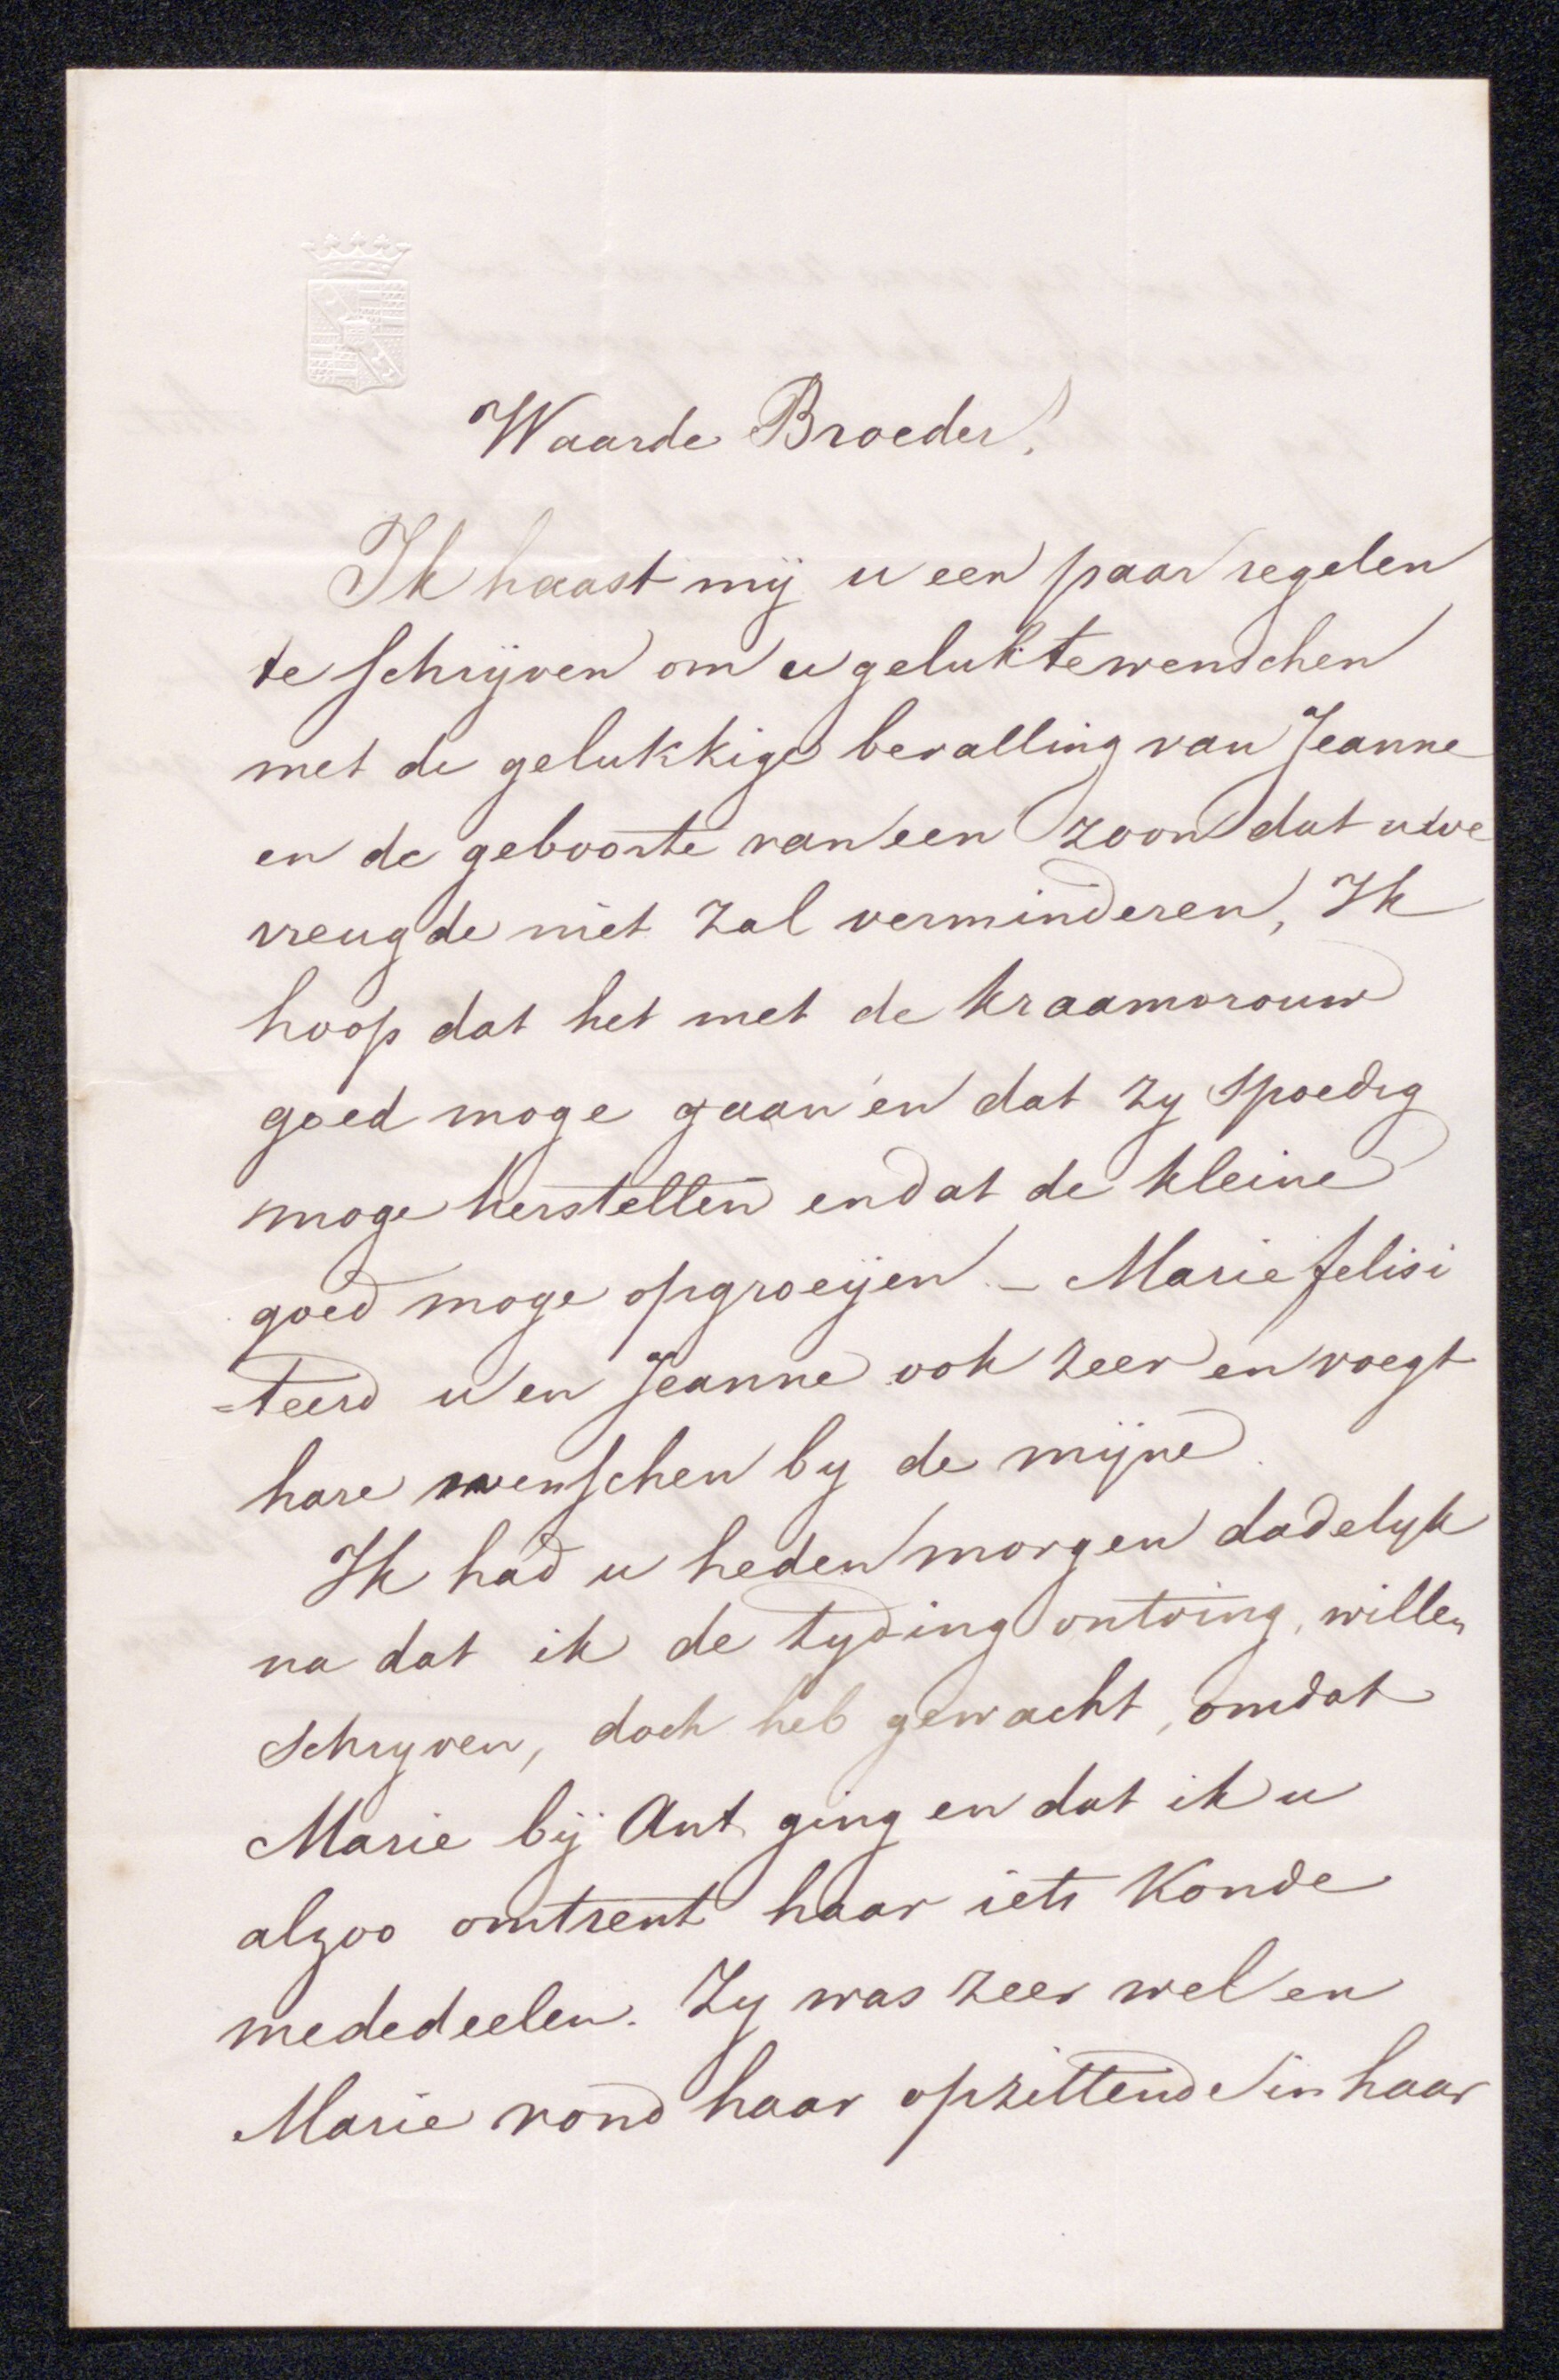 Waarde Broeder!
Ik haast mij u een paar regelen
te schrijven om u geluk te wenschen
met de gelukkige bevalling van Jeanne
en de geboorte van een zoon dat uwe
vreugde niet zal verminderen, Ik
hoop dat het met de kraamvrouw
goed moge gaan en dat zy spoedig
moge herstellen en dat de kleine
goed moge opgroeijen. - Marie felisi
=teerd u en Jeanne ook zeer en voegt
hare wenschen by de mijne.
Ik had u heden morgen dadelyk
na dat ik de tyding ontving, willen
schryven, doch heb gewacht, omdat
Marie bij Ant ging en dat ik u
alzoo omtrent haar iets Konde
mededeelen. Zy was zeer wel en
Marie vond haar opzittende in haar